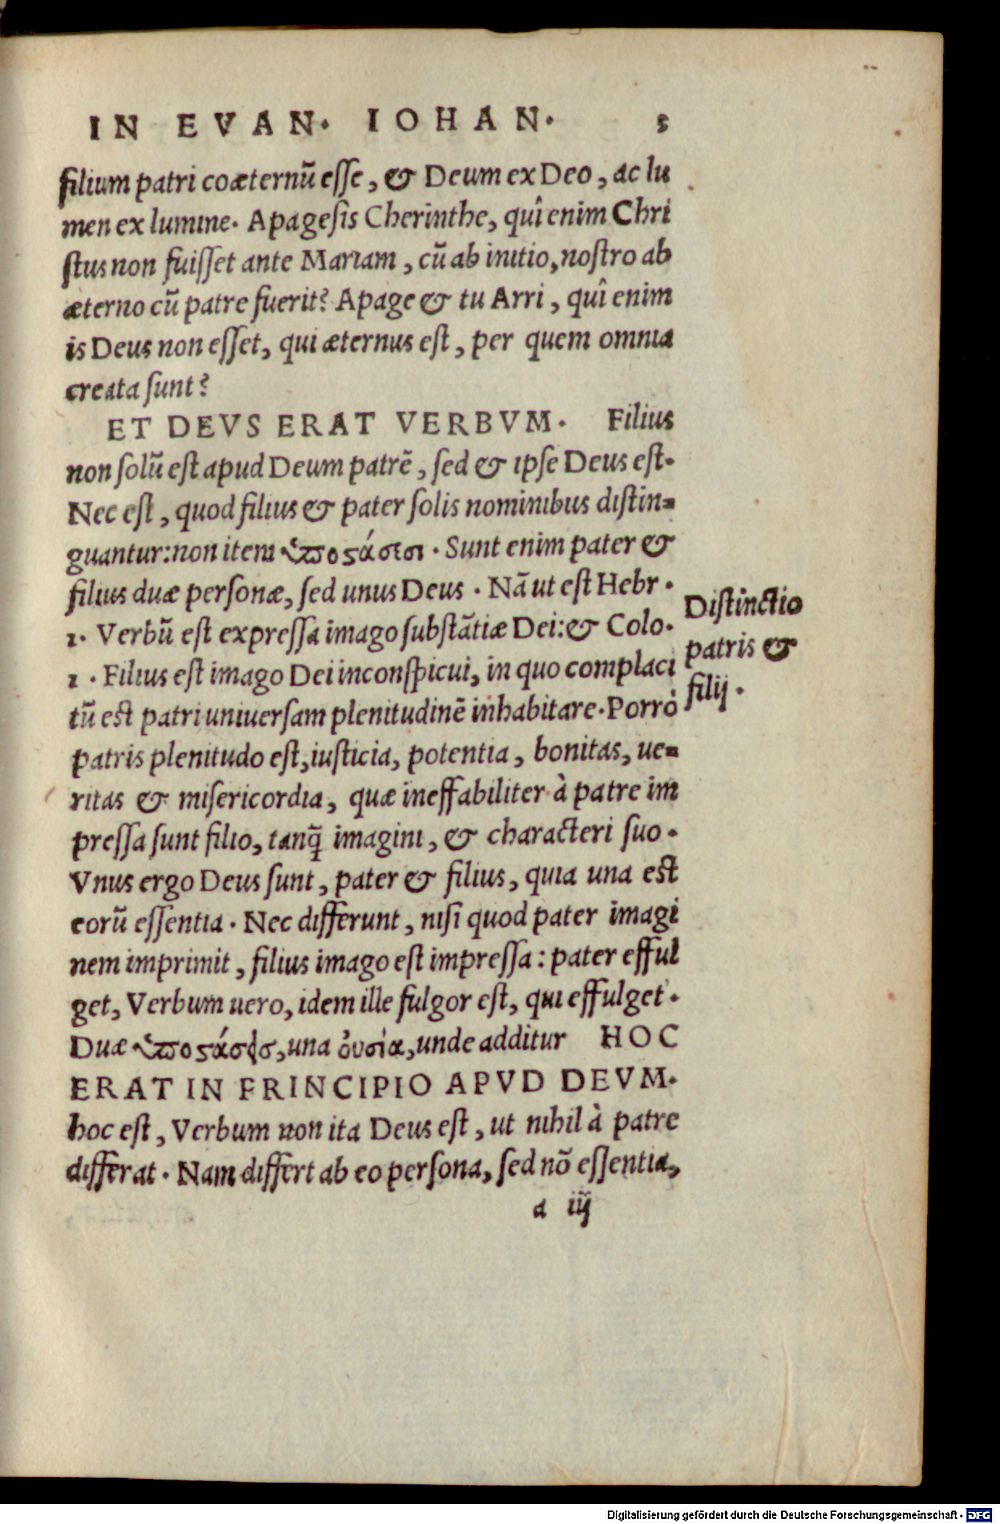 IN EVAN. IOHAN. 5
filium patri coæternũ esse, & Deum ex Deo, ac lu
men ex lumine. Apagesis Cherinthe, quî enim Chri
stus non fuisset ante Mariam, cũ ab initio, nostro ab
æterno cũ patre fuerit? Apage & tu Arri, quî enim
is Deus non esset, qui æternus est, per quem omnia
creata sunt?
ET DEVS ERAT VERBVM. Filius
non solũ est apud Deum patrẽ, sed & ipse Deus est.
Nec est, quod filius & pater solis nominibus distin=
guantur: non item ὑποςάσισι. Sunt enim pater &
filius duæ personæ, sed unus Deus. Nã ut est Hebr.
1. Verbũ est expressa imago substãtiæ Dei: & Colo.
1. Filius est imago Dei inconspicui, in quo complaci
tũ est patri universam plenitudinẽ inhabitare. Porrò
patris plenitudo est, iusticia, potentia, bonitas, ue=
ritas & misericordia, quæ ineffabiliter à patre im
pressa sunt filio, tanq̃ imagini, & characteri suo.
Vnus ergo Deus sunt, pater & filius, quia una est
eorũ essentia. Nec differunt, nisi quod pater imagi
nem imprimit, filius imago est impressa: pater efful
get, Verbum uero, idem ille fulgor est, qui effulget.
Duæ ὑποςάσεισ, una οὐσία, unde additur HOC
ERAT IN PRINCIPIO APVD DEVM.
hoc est, Verbum non ita Deus est, ut nihil à patre
differat. Nam differt ab eo persona, sed nõ essentia,
a iij
Distinctio
patris &
filij.
Digitalisierung gefördert durch die Deutsche Forschungsgemeinschaft - DFG